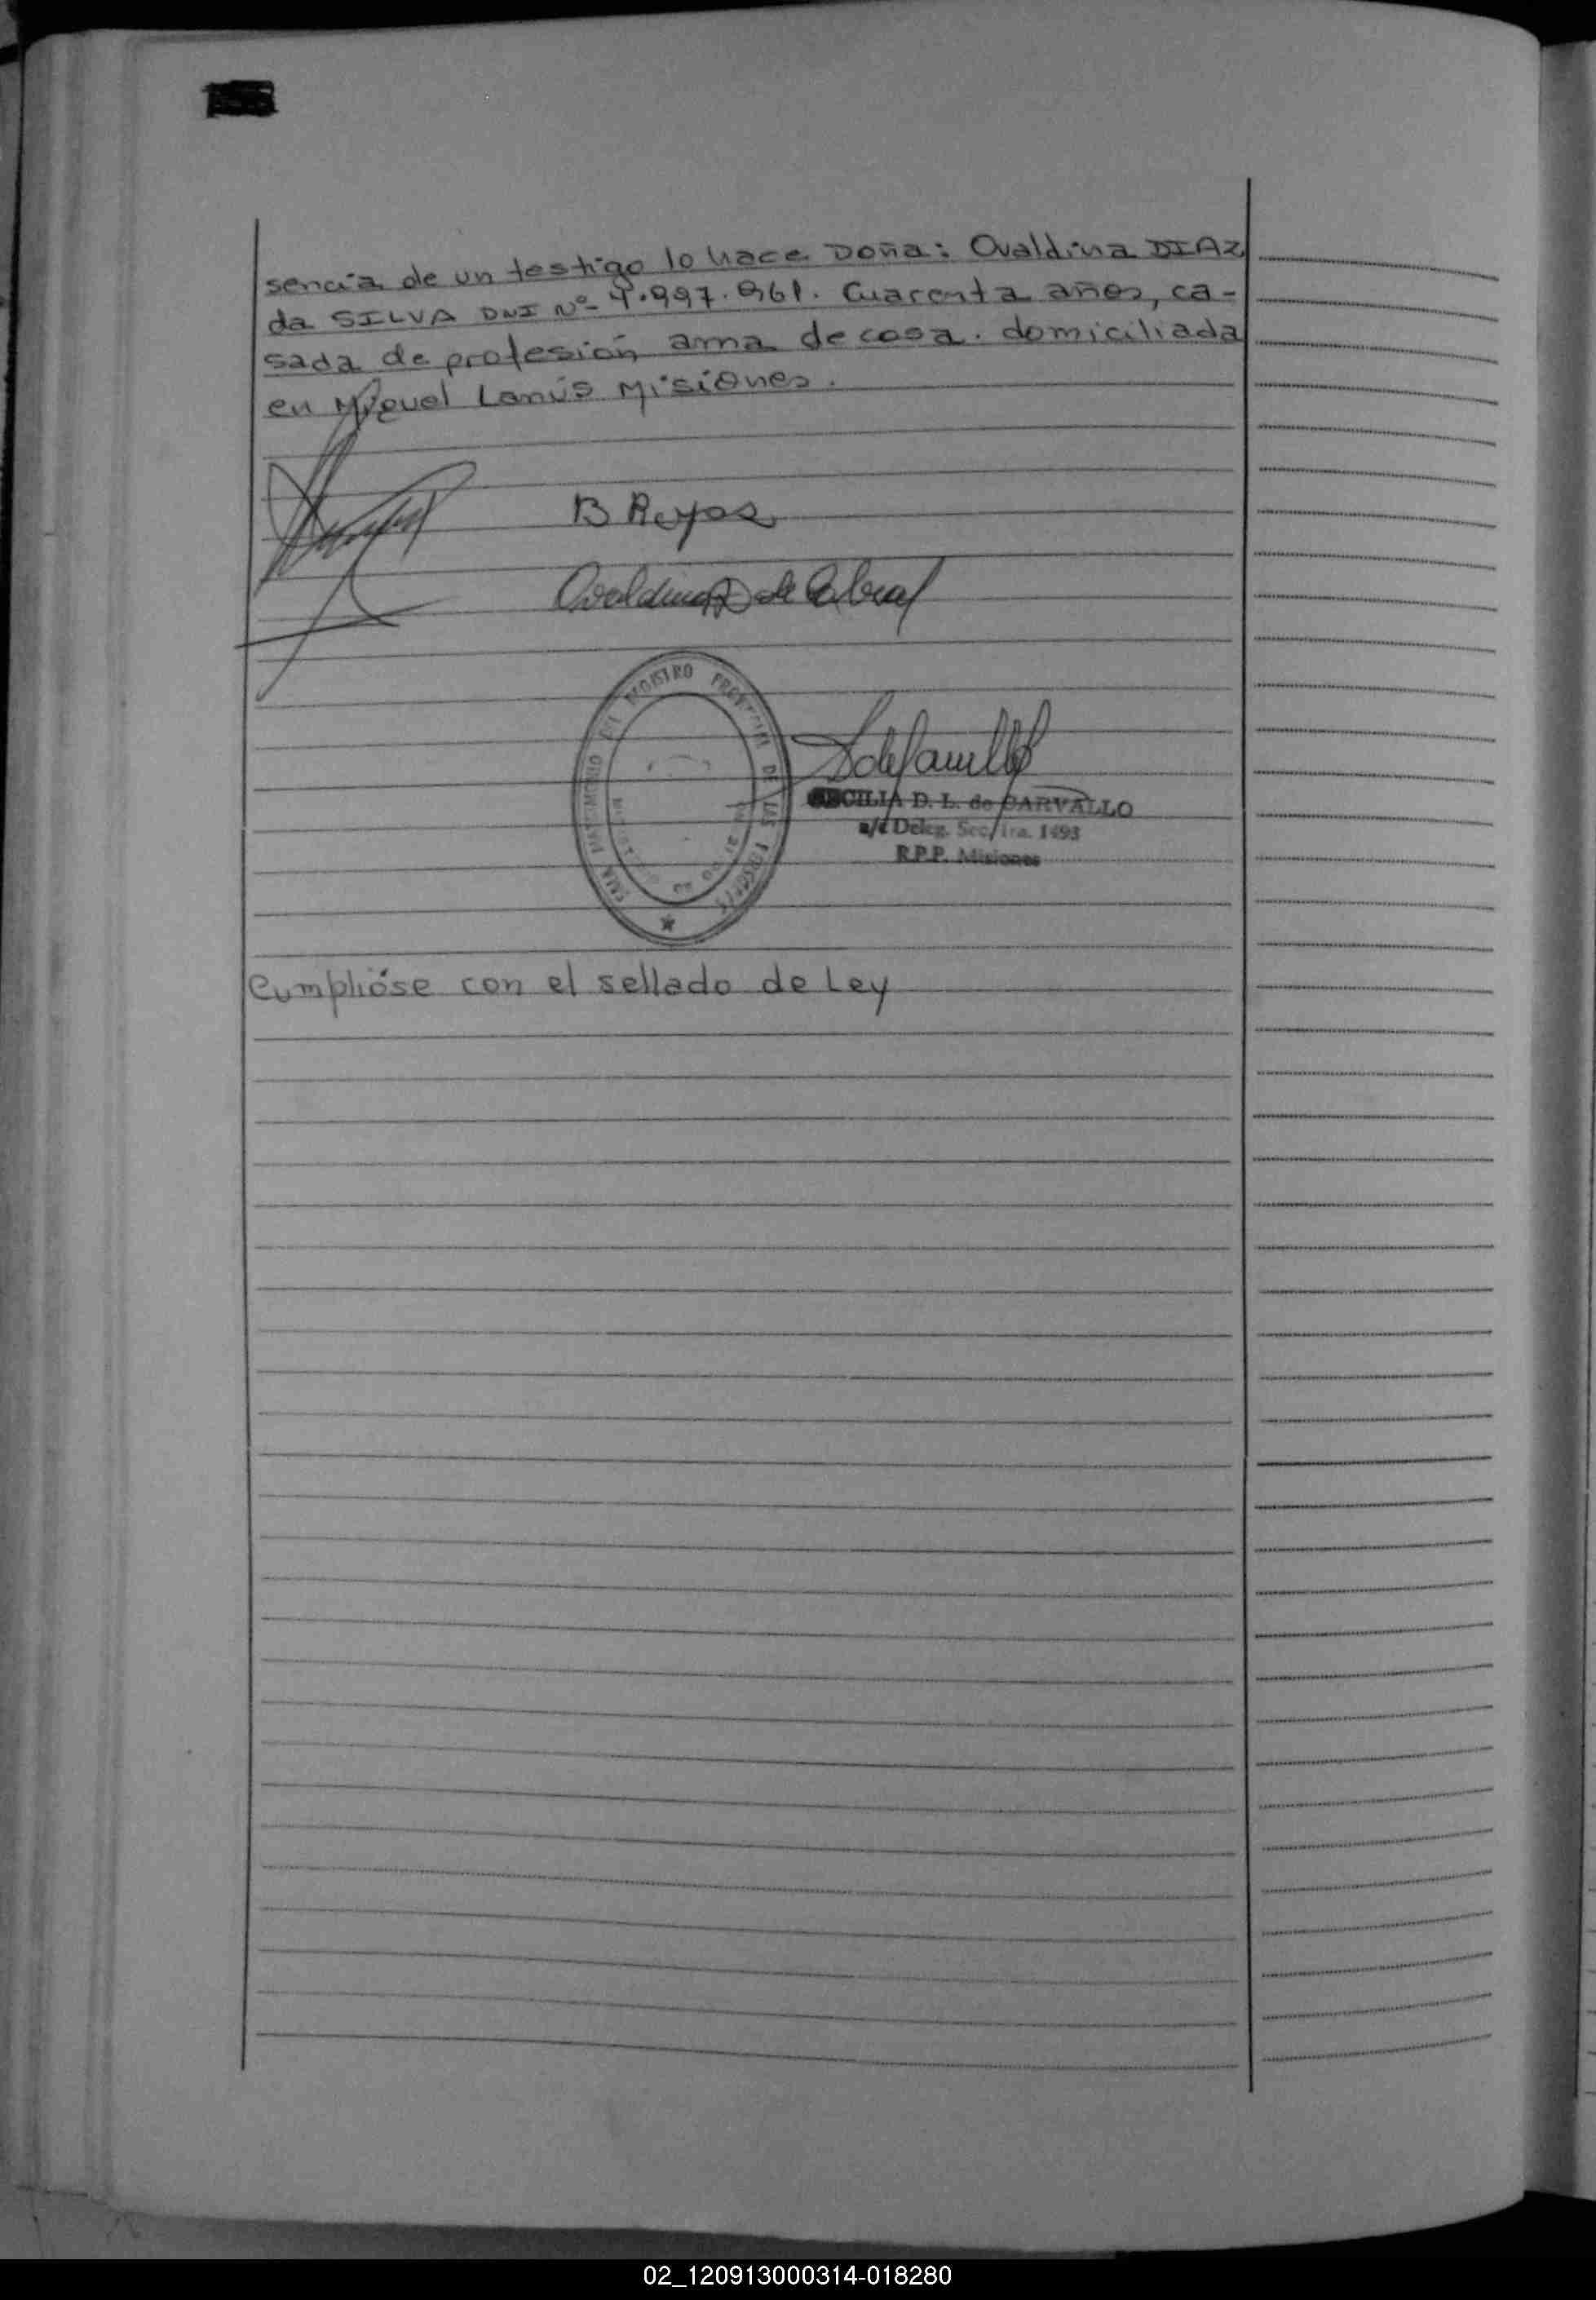 sencia de un testigo lo hace Doña: Ovaldina DIAZ
da SILVA DNI Nº 4.997.961. Cuarenta años, ca-
sada de profesión ama de casa. domiciliada
en Miguel Lanús Misiones.
B Reyes
Ovaldina D de Cabral
REGISTRO PROVINCIAL DE LAS PERSONAS
CECILIA D. L. de CARVALLO
a/c Deleg. Sec. 1ra. 1493
R.P.P. Misiones
Cumplióse con el sellado de Ley
02_120913000314-018280